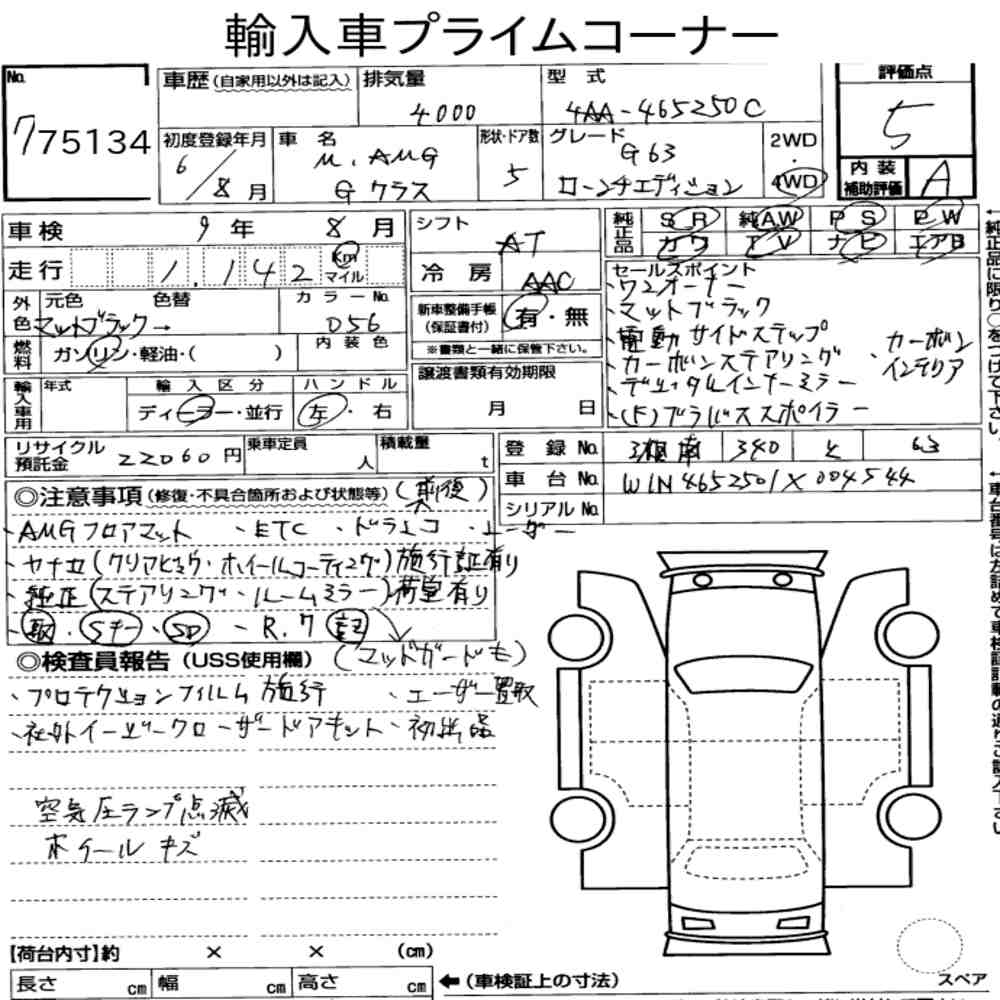 輸入車プライムコーナー
No. 775134
車歴(自家用以外は記入)
排気量 4000
型式 4AA-465250C
評価点 5
初度登録年月 6/8月
車名 M.AMG Gクラス
形状・ドア数 5
グレード G63 ローンチエディション
2WD・4WD
内装補助評価 A
車検 9年 8月
シフト AT
純正品 SR 純AW PS PW
カワ TV ナビ エアB
走行 1,142 Km マイル
冷房 AAC
セールスポイント
・ワンオーナー
・マットブラック
・電動サイドステップ
・カーボンステアリング ・カーボンインテリア
・デジタルインナーミラー
・(F)ブラバススポイラー
外色 元色 色替 カラーNo.
マットブラック→ 056
新車整備手帳(保証書付) 有・無
※書類と一緒に保管下さい。
燃料 ガソリン・軽油・( ) 内装色
譲渡書類有効期限
月 日
輸入車用 年式 輸入区分 ハンドル
ディーラー・並行 左・右
リサイクル預託金 22060円
乗車定員 人
積載量 t
登録No. 湘南 340 と 63
車台No. W1N4652501X004544
シリアルNo.
◎注意事項(修復・不具合箇所および状態等)(前後)
・AMGフロアマット ・ETC ・ドラレコ ・レーダー
・ヤナセ(クリアビュウ・ホイールコーティング)施行証有り
・純正(ステアリング・ルームミラー)荷室有り
・取・Sキー・SD ・R.7 記
◎検査員報告(USS使用欄)(マッドガードも)
・プロテクションフィルム施行 ・ユーザー買取
・社外イージークローザードアキット・初出品
空気圧ランプ点滅
ホイールキズ
【荷台内寸】約 × × (cm)
長さ cm 幅 cm 高さ cm
←(車検証上の寸法)
スペア
←純正品に限り○をつけて下さい。